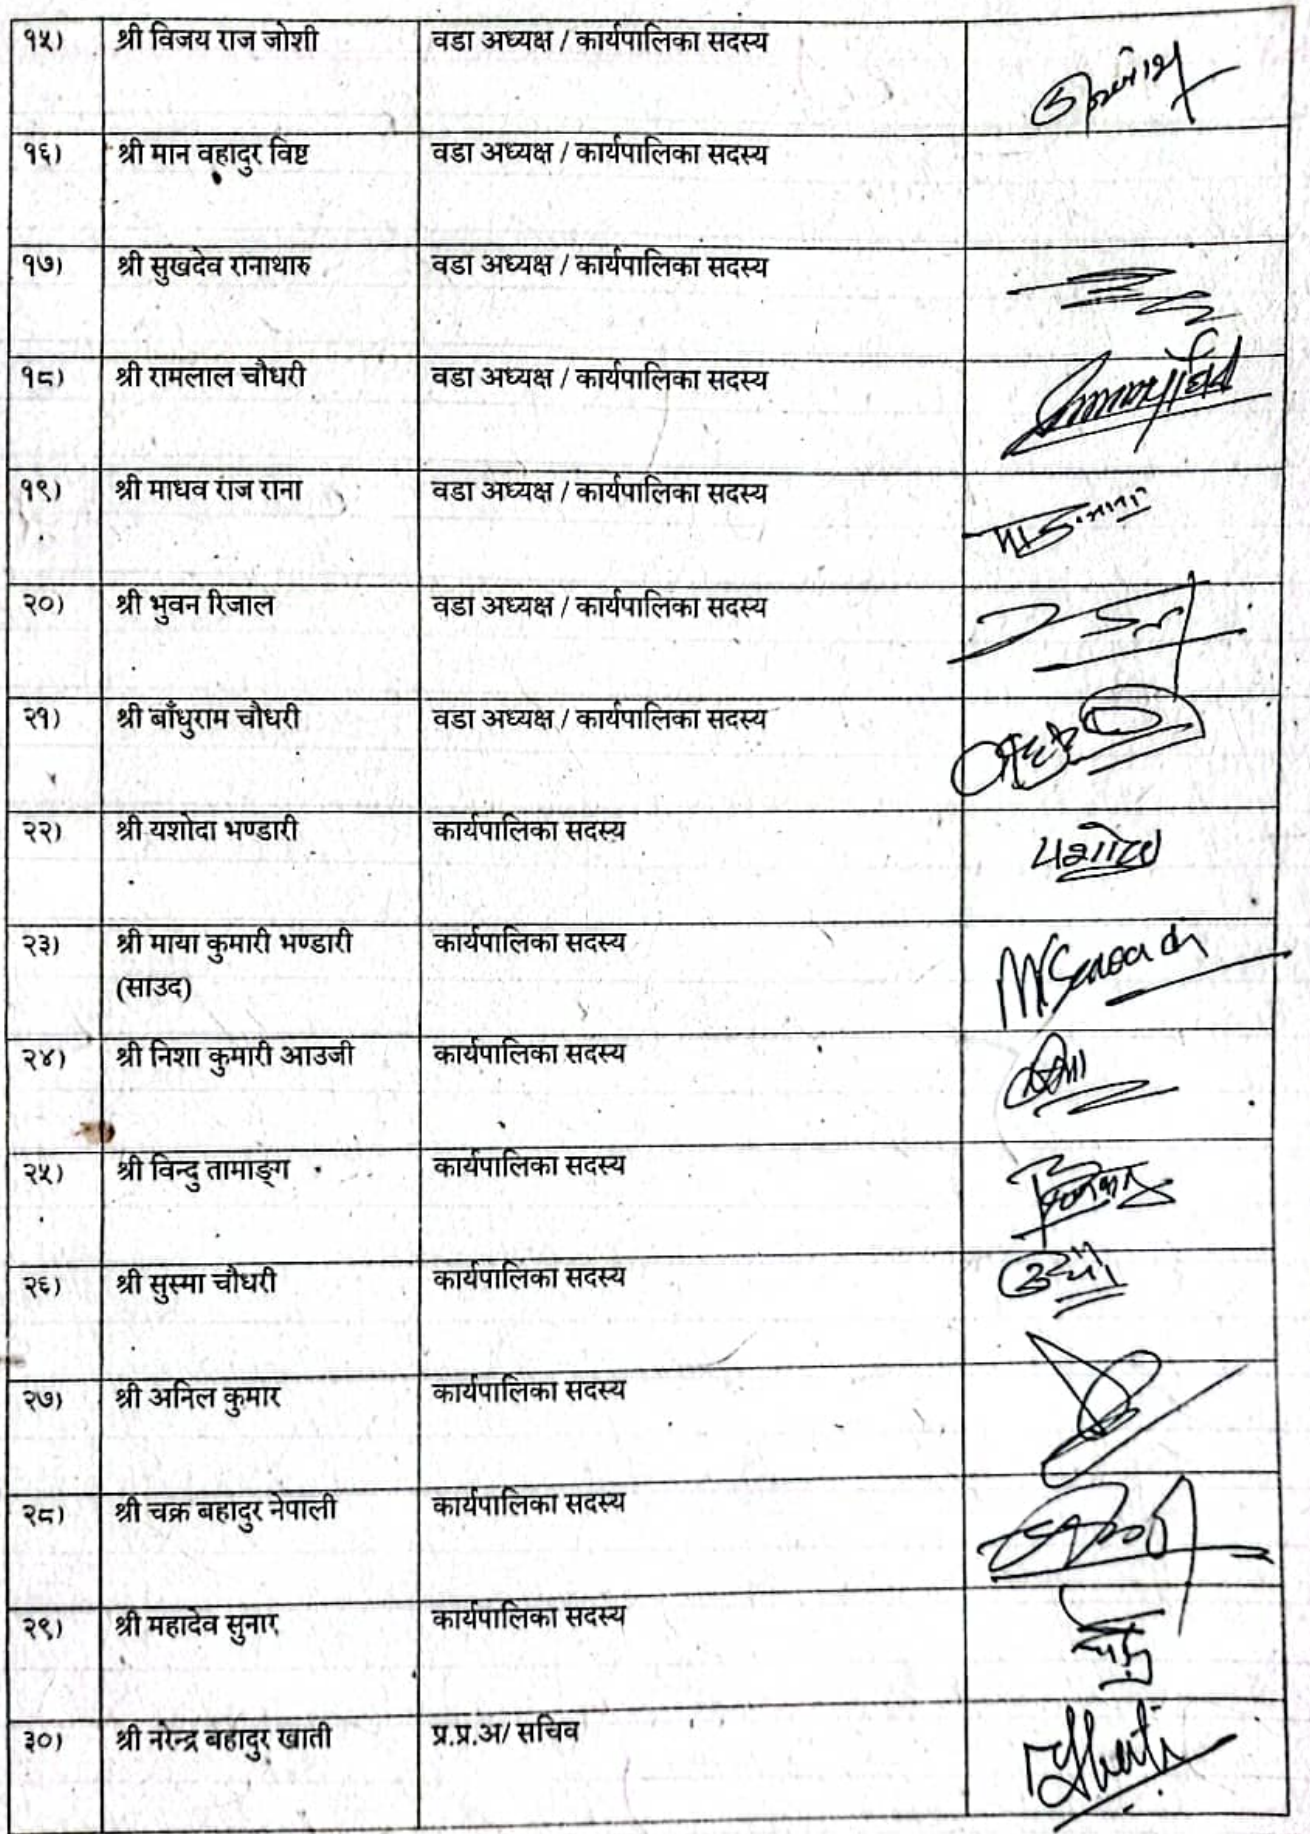 १५) श्री विजय राज जोशी वडा अध्यक्ष / कार्यपालिका सदस्य
१६) श्री मान वहादुर विष्ट वडा अध्यक्ष / कार्यपालिका सदस्य
१७) श्री सुखदेव रानाथारु वडा अध्यक्ष / कार्यपालिका सदस्य
१८) श्री रामलाल चौधरी वडा अध्यक्ष / कार्यपालिका सदस्य
१९) श्री माधव राज राना वडा अध्यक्ष / कार्यपालिका सदस्य
२०) श्री भुवन रिजाल वडा अध्यक्ष / कार्यपालिका सदस्य
२१) श्री बाँधुराम चौधरी वडा अध्यक्ष / कार्यपालिका सदस्य
२२) श्री यशोदा भण्डारी कार्यपालिका सदस्य यशोदा
२३) श्री माया कुमारी भण्डारी कार्यपालिका सदस्य
(साउद)
२४) श्री निशा कुमारी आउजी कार्यपालिका सदस्य
२५) श्री विन्दु तामाङ्ग कार्यपालिका सदस्य
२६) श्री सुस्मा चौधरी कार्यपालिका सदस्य
२७) श्री अनिल कुमार कार्यपालिका सदस्य
२८) श्री चक्र बहादुर नेपाली कार्यपालिका सदस्य
२९) श्री महादेव सुनार कार्यपालिका सदस्य
३०) श्री नरेन्द्र बहादुर खाती प्र.प्र.अ/ सचिव